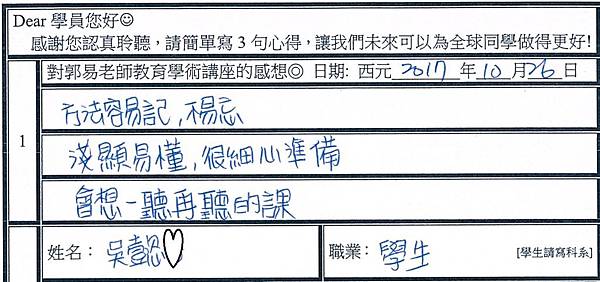 Dear 學員您好☺
感謝您認真聆聽，請簡單寫 3 句心得，讓我們未來可以為全球同學做得更好!
對郭易老師教育學術講座的感想◎ 日期: 西元 2017 年 10 月 26 日
1
方法容易記，不易忘
淺顯易懂，很細心準備
會想一聽再聽的課
姓名： 吳懿♡
職業： 學生 [學生請寫科系]